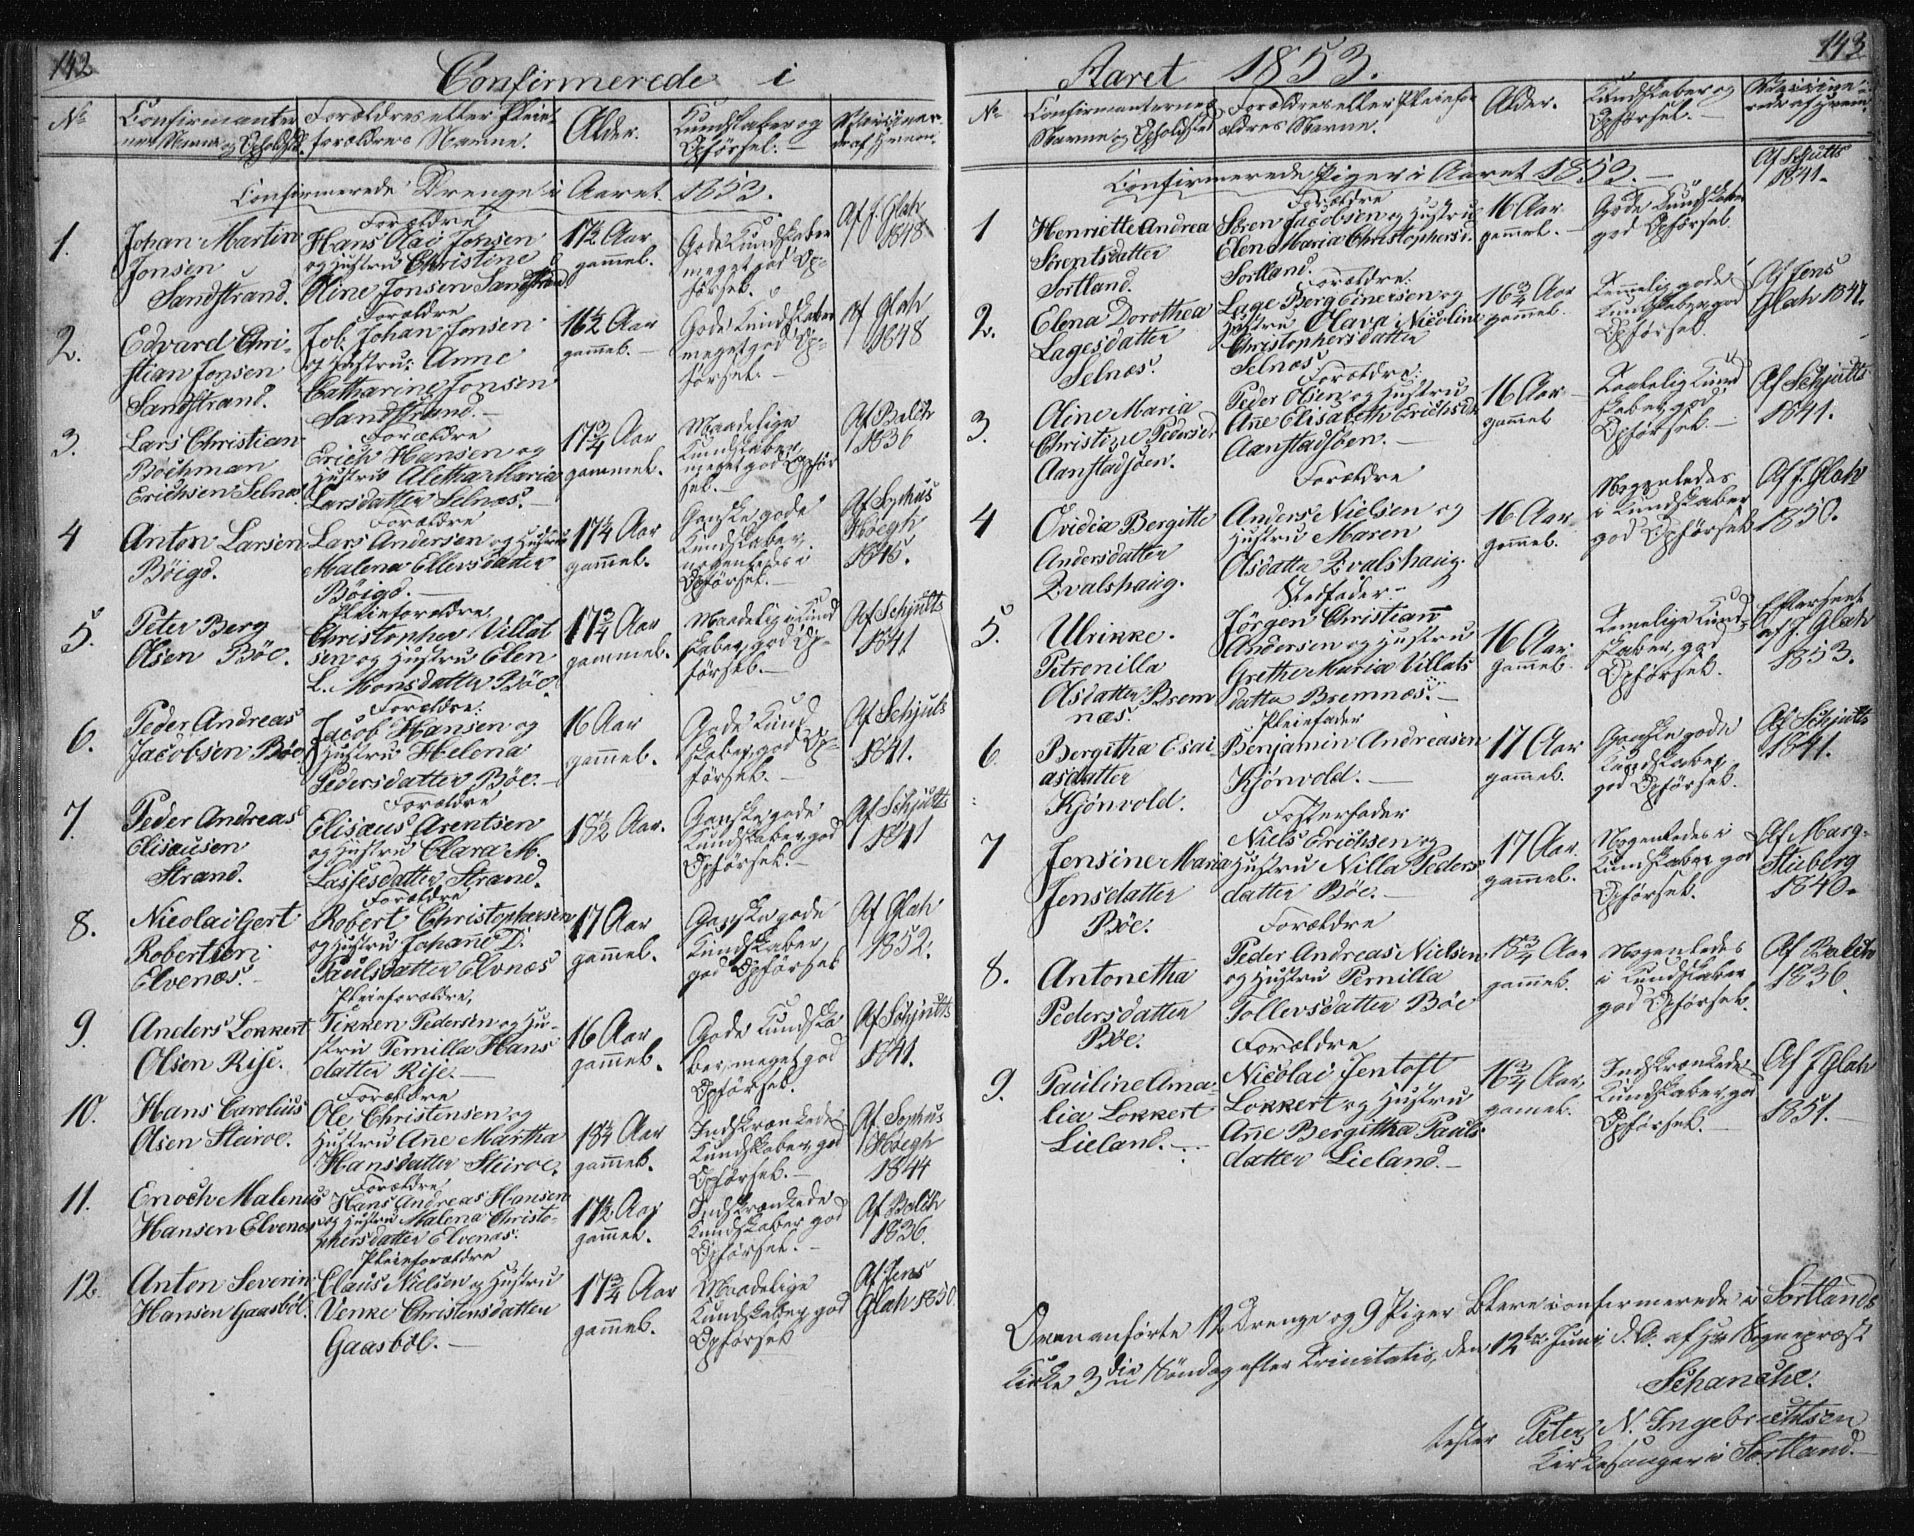 142
Confirmerede i
No
Confirmanter
nes Navne og Opholdst.
Forældres eller Pleie-
forældres Navne.
Alder.
Kundskaber og
Opførsel.
Vacciner
ede af Hvem.
Confirmerede Drenge i Aaret 1853.
1.
Johan Martin
Jonsen
Sandstrand.
Forældre
Hans Claö Jonsen
og Hustru Christine
Oline Jonsen Sandstrand
17½ Aar
gammel.
Gode Kundskaber
meget god Op-
førsel.
Af J. Glah
1848
2.
Edvard Chri-
stian Jonsen
Sandstrand.
Forældre
Job. Johan Jonsen
og Hustru: Anne
Catharine Jonsen
Sandstrand.
16½ Aar
gammel.
Gode Kundskaber
meget god Op-
førsel.
Af Glah
1848
3.
Lars Christian
Bochman
Erichsen Selnæs
Forældre
Erich Hansen og
Hustru Aletha Maria
Larsdatter Selnæs.
17¾ Aar
gammel.
Maadelige
Kundskaber,
meget god Opfør
sel.
Af Balch
1836
4
Anton Larsen
Böigd.
Forældre
Lars Andersen og Hustru
Malena Ellersdatter
Böigd.
17¼ Aar
gammel.
Ganske gode
Kundskaber,
nogenledes i
Opførsel.
Af Sophus
Höegh
1845.
5.
Peter Berg
Olsen Böe.
Pleieforældre,
Christopher Villat
sen og Hustru Elen
L. Monsdatter Böe.
17¾ Aar
gammel.
Maadelig i Kund
skaber, god Op-
førsel.
Af Schjults
1841
6.
Peder Andreas
Jacobsen Böe
Forældre:
Jacob Hansen og
Hustru Helena
Pedersdatter Böe.
16 Aar
gammel.
Gode Kund
skaber, god Op-
førsel.
Af Schjuls
1841.
7.
Peder Andreas
Elisæusen
Strand.
Forældre
Elisæus Arentsen
og Hustru Clara M.
Lassesdatter Strand.
18½ Aar.
Ganske gode
Kundskaber, god
Opførsel.
Af Schjults
1841
8.
Nicolai Gert
Robertsen
Elvenæs.
Forældre
Robert Christophersen
og Hustru Johanne D.
Paulsdatter Elvnæs
17 Aar
gammel.
Ganske gode
Kundskaber,
god Opførsel
Af Glah
1852.
9.
Anders Lokkert
Olsen Rise.
Pleieforældre,
Tikken Pedersen og Hu-
stru Pernilla Hans
datter Rise.
16 Aar
gammel.
Gode Kundska
ber, meget god
Opførsel.
Af Schjults
1841.
10.
Hans Carolius
Olsen Steiroe.
Forældre
Ole Christensen og
Hustru Ane Martha
Hansdatter Steiroe.
18¼ Aar
gammel.
Indskrænkede
Kundskaber, god
Opførsel.
Af Sophus
Höegh
1844
11.
Enoch Malenus
Hansen Elvenæs
Forældre
Hans Andreas Hansen
og Hustru Malena Christo-
phersdatter Elvenæs.
17½ Aar
gammel.
Indskrænkede
Kundskaber, god
Opførsel.
Af Balch
1836.
12.
Anton Severin
Hansen Gaasböl.
Pleieforældre
Claus Nielsen og Hustru
Venke Christensdatter
Gaasböl.
17¾ Aar
gammel.
Maadelige
Kundskaber, god
Opførsel
Af Jens
Glah 1850.
143
Aaret 1853.
No
Confirmanternes
Navne og Opholdsted
Forældres eller Pleiefor
ældres Navne.
Alder.
Kundskaber og
Opførsel.
Confirmerede Piger i Aaret 1853.
1
Henriette Andrea
Sörentsdatter
Sortland.
Forældre
Sören Jacobsen og Hustru
Elen Maria Christophersd.
Sortland.
16 Aar
gammel.
Gode Kundskaber
god Opførsel
Af Schjults
1841.
2.
Elena Dorothea
Lagesdatter
Selnæs.
Forældre:
Lage Berg Einersen og
Hustru Olava Nicoline
Christophersdatter
Selnæs
16¾ Aar
gammel.
Temmelig gode
Kundskaber, god
Opførsel.
Af Jens
Glah 1847.
3.
Oline Maria
Christine Pedersd.
Aanstadsjöen.
Forældre:
Peder Olsen og Hustru
Ane Elisabeth Erichsd.
Aanstadsjöen.
16 Aar
gammel
Taalelig Kund
skaber, god
Opførsel.
Af Schjults
1841.
4
Ovidia Bergitte
Andersdatter
Evalshaug.
Forældre
Anders Nielsen og
Hustru Maren
Olsdatter Evalshaug.
16 Aar
gammel.
Nogenledes
i Kundskaber
god Opførsel
Af J. Glah
1850.
5.
Ulrikke
Petronilla
Olsdatter Brem
næs.
Stedfader
Jörgen Christian
Andersen og Hustru
Grethe Maria Villats
datter Bremnæs.
16 Aar
gammel.
Temelige Kund-
skaber, god
Opførsel.
Efterseet
af J. Glah
1853.
6.
Bergitha Esai
asdatter
Kjönvold.
Pleiefader
Benjamin Andreasen
Kjönvold.
17 Aar
gammel.
Ganske gode
Kundskaber
god Opførsel.
Af Schjults
1841.
7
Jensine Maria
Jensdatter
Böe.
Fosterfader
Niels Erichsen og
Hustru Nilla Peders
datter Böe.
17 Aar.
gammel.
Nogenledes i
Kundskaber, god
Opførsel.
Af Marg.
Stuberg
1840.
8.
Antonetha
Pedersdatter
Böe.
Forældre
Peder Andreas Nielsen
og Hustru Pernilla
Tollevsdatter Böe
18¾ Aar
gammel.
Nogenledes
i Kundskaber
god Opførsel.
Af Balch
1836
9.
Pauline Ama-
lia Lokkert
Lieland.
Forældre
Nicolai Jentoft
Lokkert og Hustru
Ane Bergitha Pauls
datter Lieland.
16¾ Aar,
gamel.
Indskrænkede
Kundskaber, god
Opførsel.
Af J Glah
1851.
Ovenanførte 12 Drenge og 9 Piger blere confirmerede i Sortlands
Kirke 3die Søndag efter Trinitatis, den 12te Juni d. A. af Hr Sognepræst
Schanche.
tester Peter N. Ingebrichtsen
Kirkesanger i Sortland.